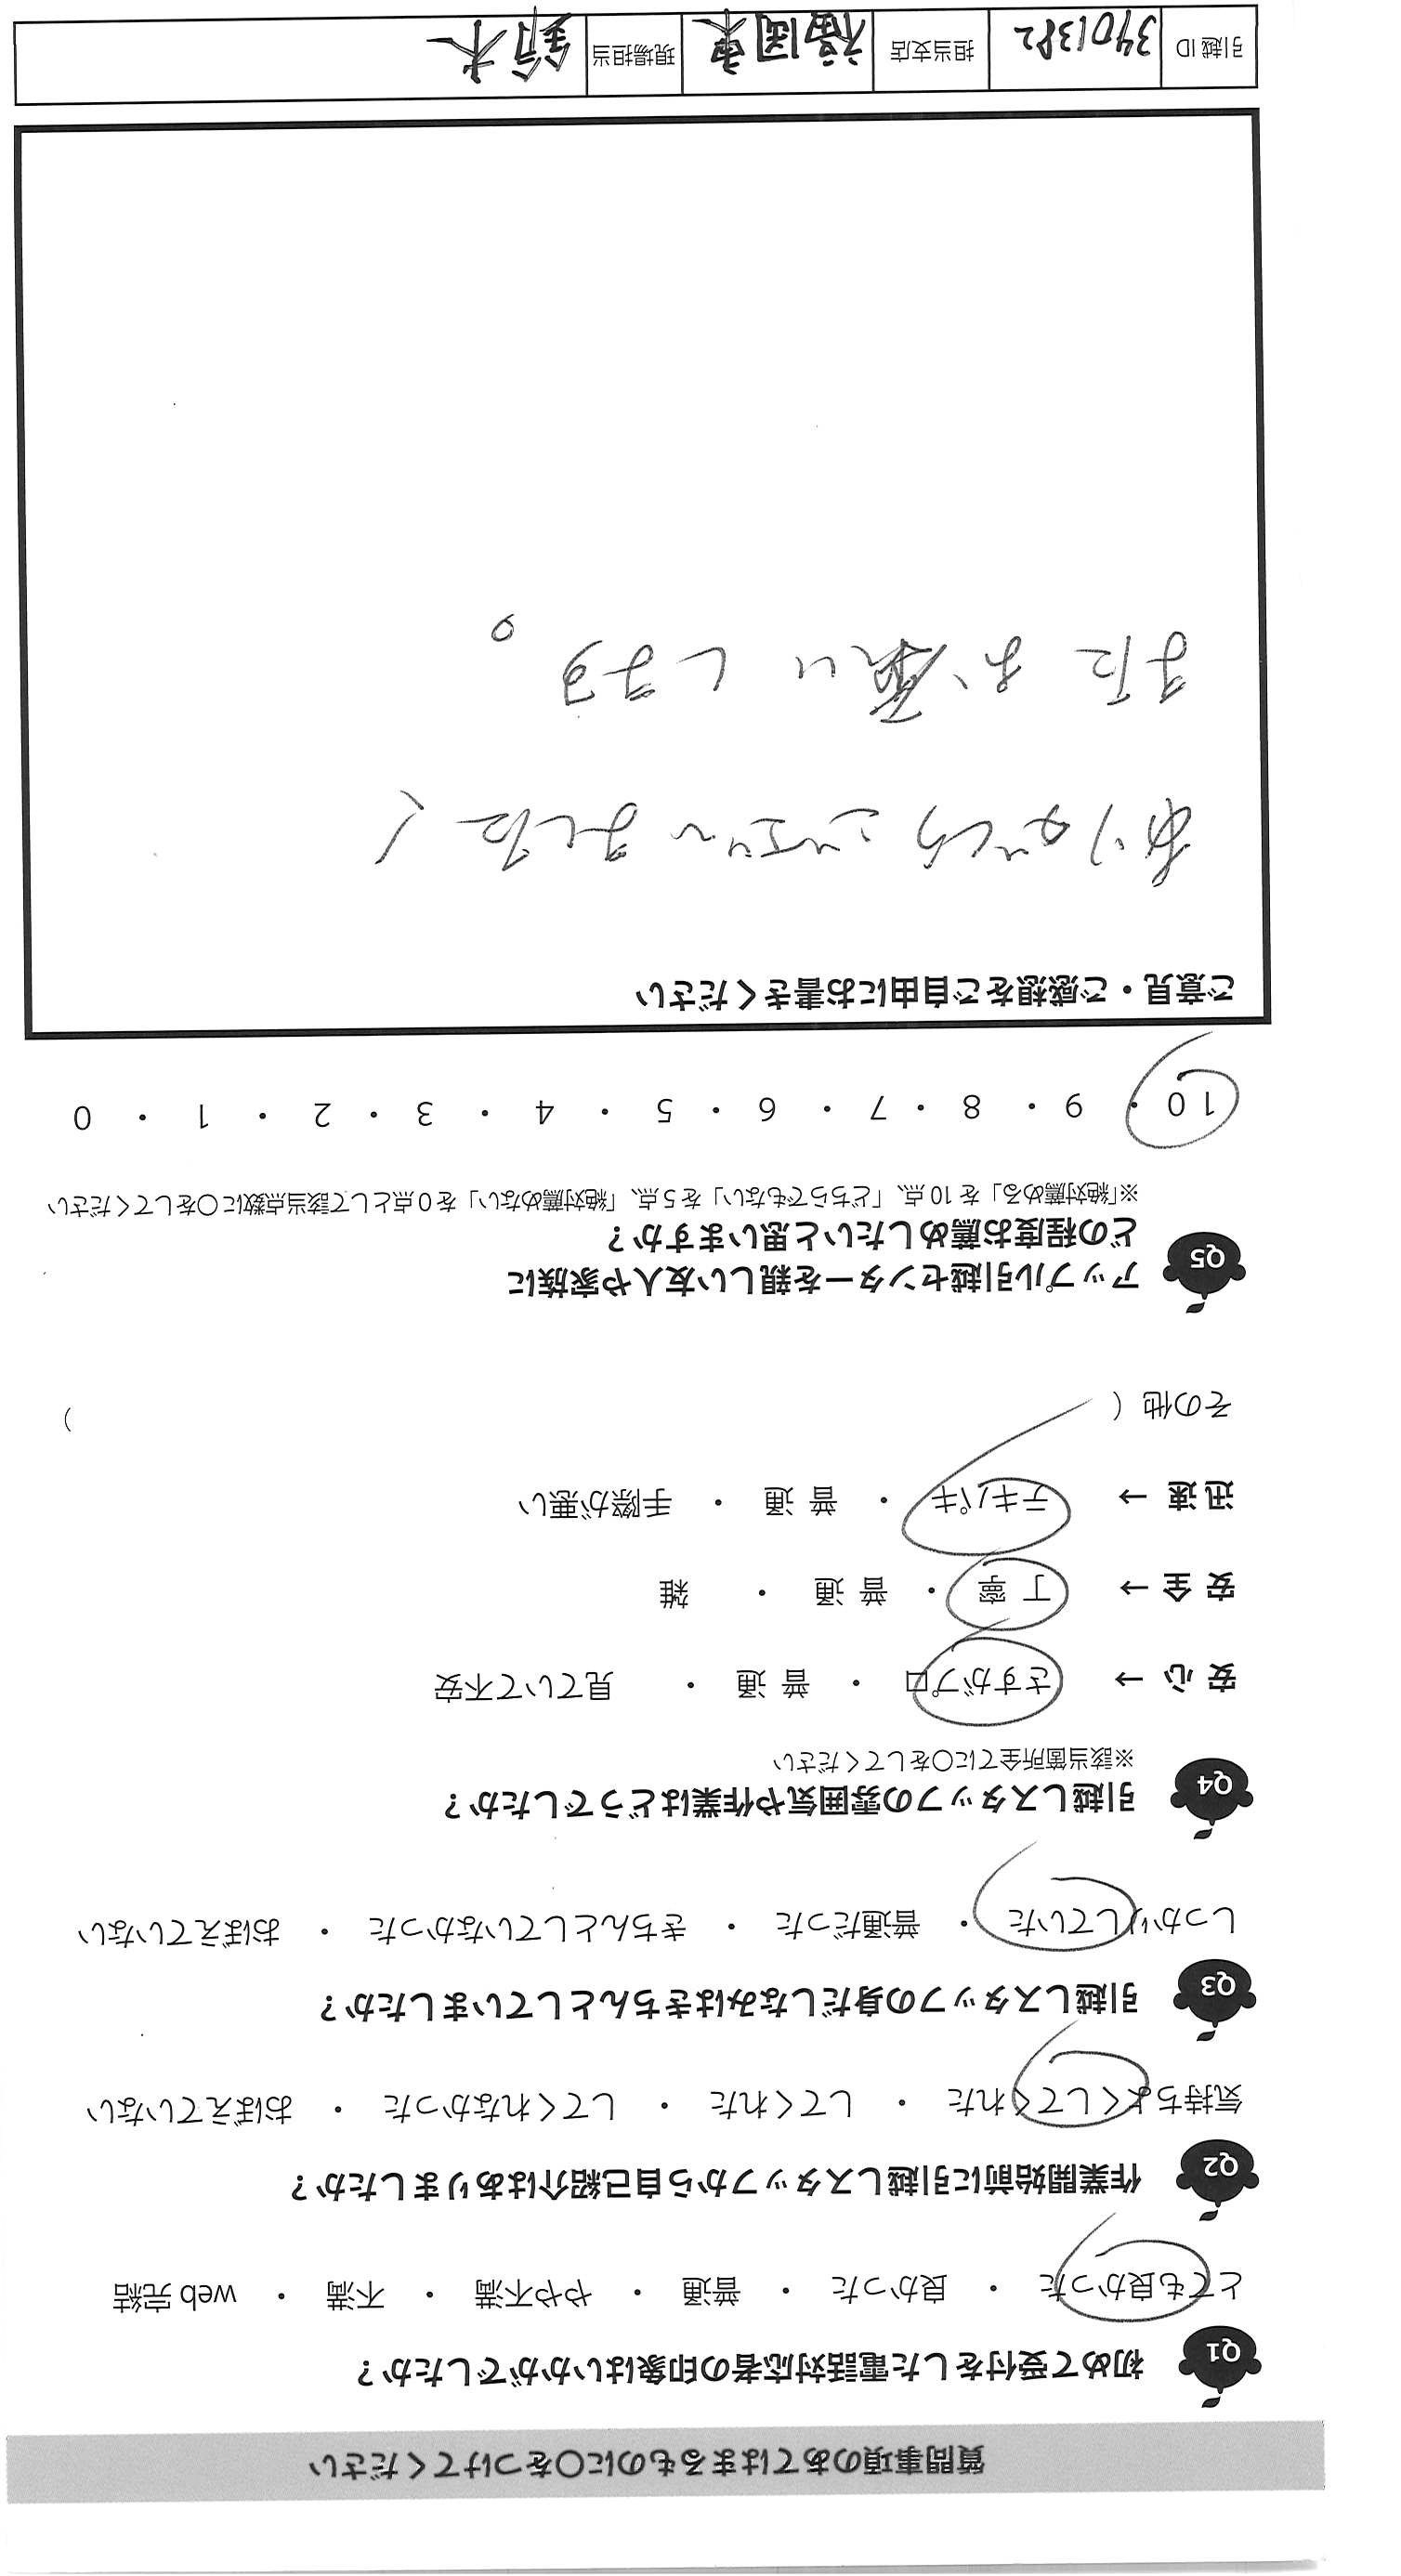 質問事項のあてはまるものに○をつけてください
Q1 初めて受付をした電話対応者の印象はいかがでしたか？
とても良かった ・ 良かった ・ 普通 ・ やや不満 ・ 不満 ・ web 完結
Q2 作業開始前に引越しスタッフから自己紹介はありましたか？
気持ちよくしてくれた ・ してくれた ・ してくれなかった ・ おぼえていない
Q3 引越しスタッフの身だしなみはきちんとしていましたか？
しっかりしていた ・ 普通だった ・ きちんとしていなかった ・ おぼえていない
Q4 引越しスタッフの雰囲気や作業はどうでしたか？
※該当箇所全てに○をしてください
安 心 → さすがプロ ・ 普 通 ・ 見ていて不安
安 全 → 丁 寧 ・ 普 通 ・ 雑
迅 速 → テキパキ ・ 普 通 ・ 手際が悪い
その他（ ）
Q5 アップル引越センターを親しい友人や家族に
どの程度お薦めしたいと思いますか？
※「絶対薦める」を 10 点、「どちらでもない」を 5 点、「絶対薦めない」を 0 点として該当点数に○をしてください
10 ・ 9 ・ 8 ・ 7 ・ 6 ・ 5 ・ 4 ・ 3 ・ 2 ・ 1 ・ 0
ご意見・ご感想をご自由にお書きください
ありがとうございました！
またお願いします。
引越 ID 3401382 担当支店 福岡東 現場担当 鈴木